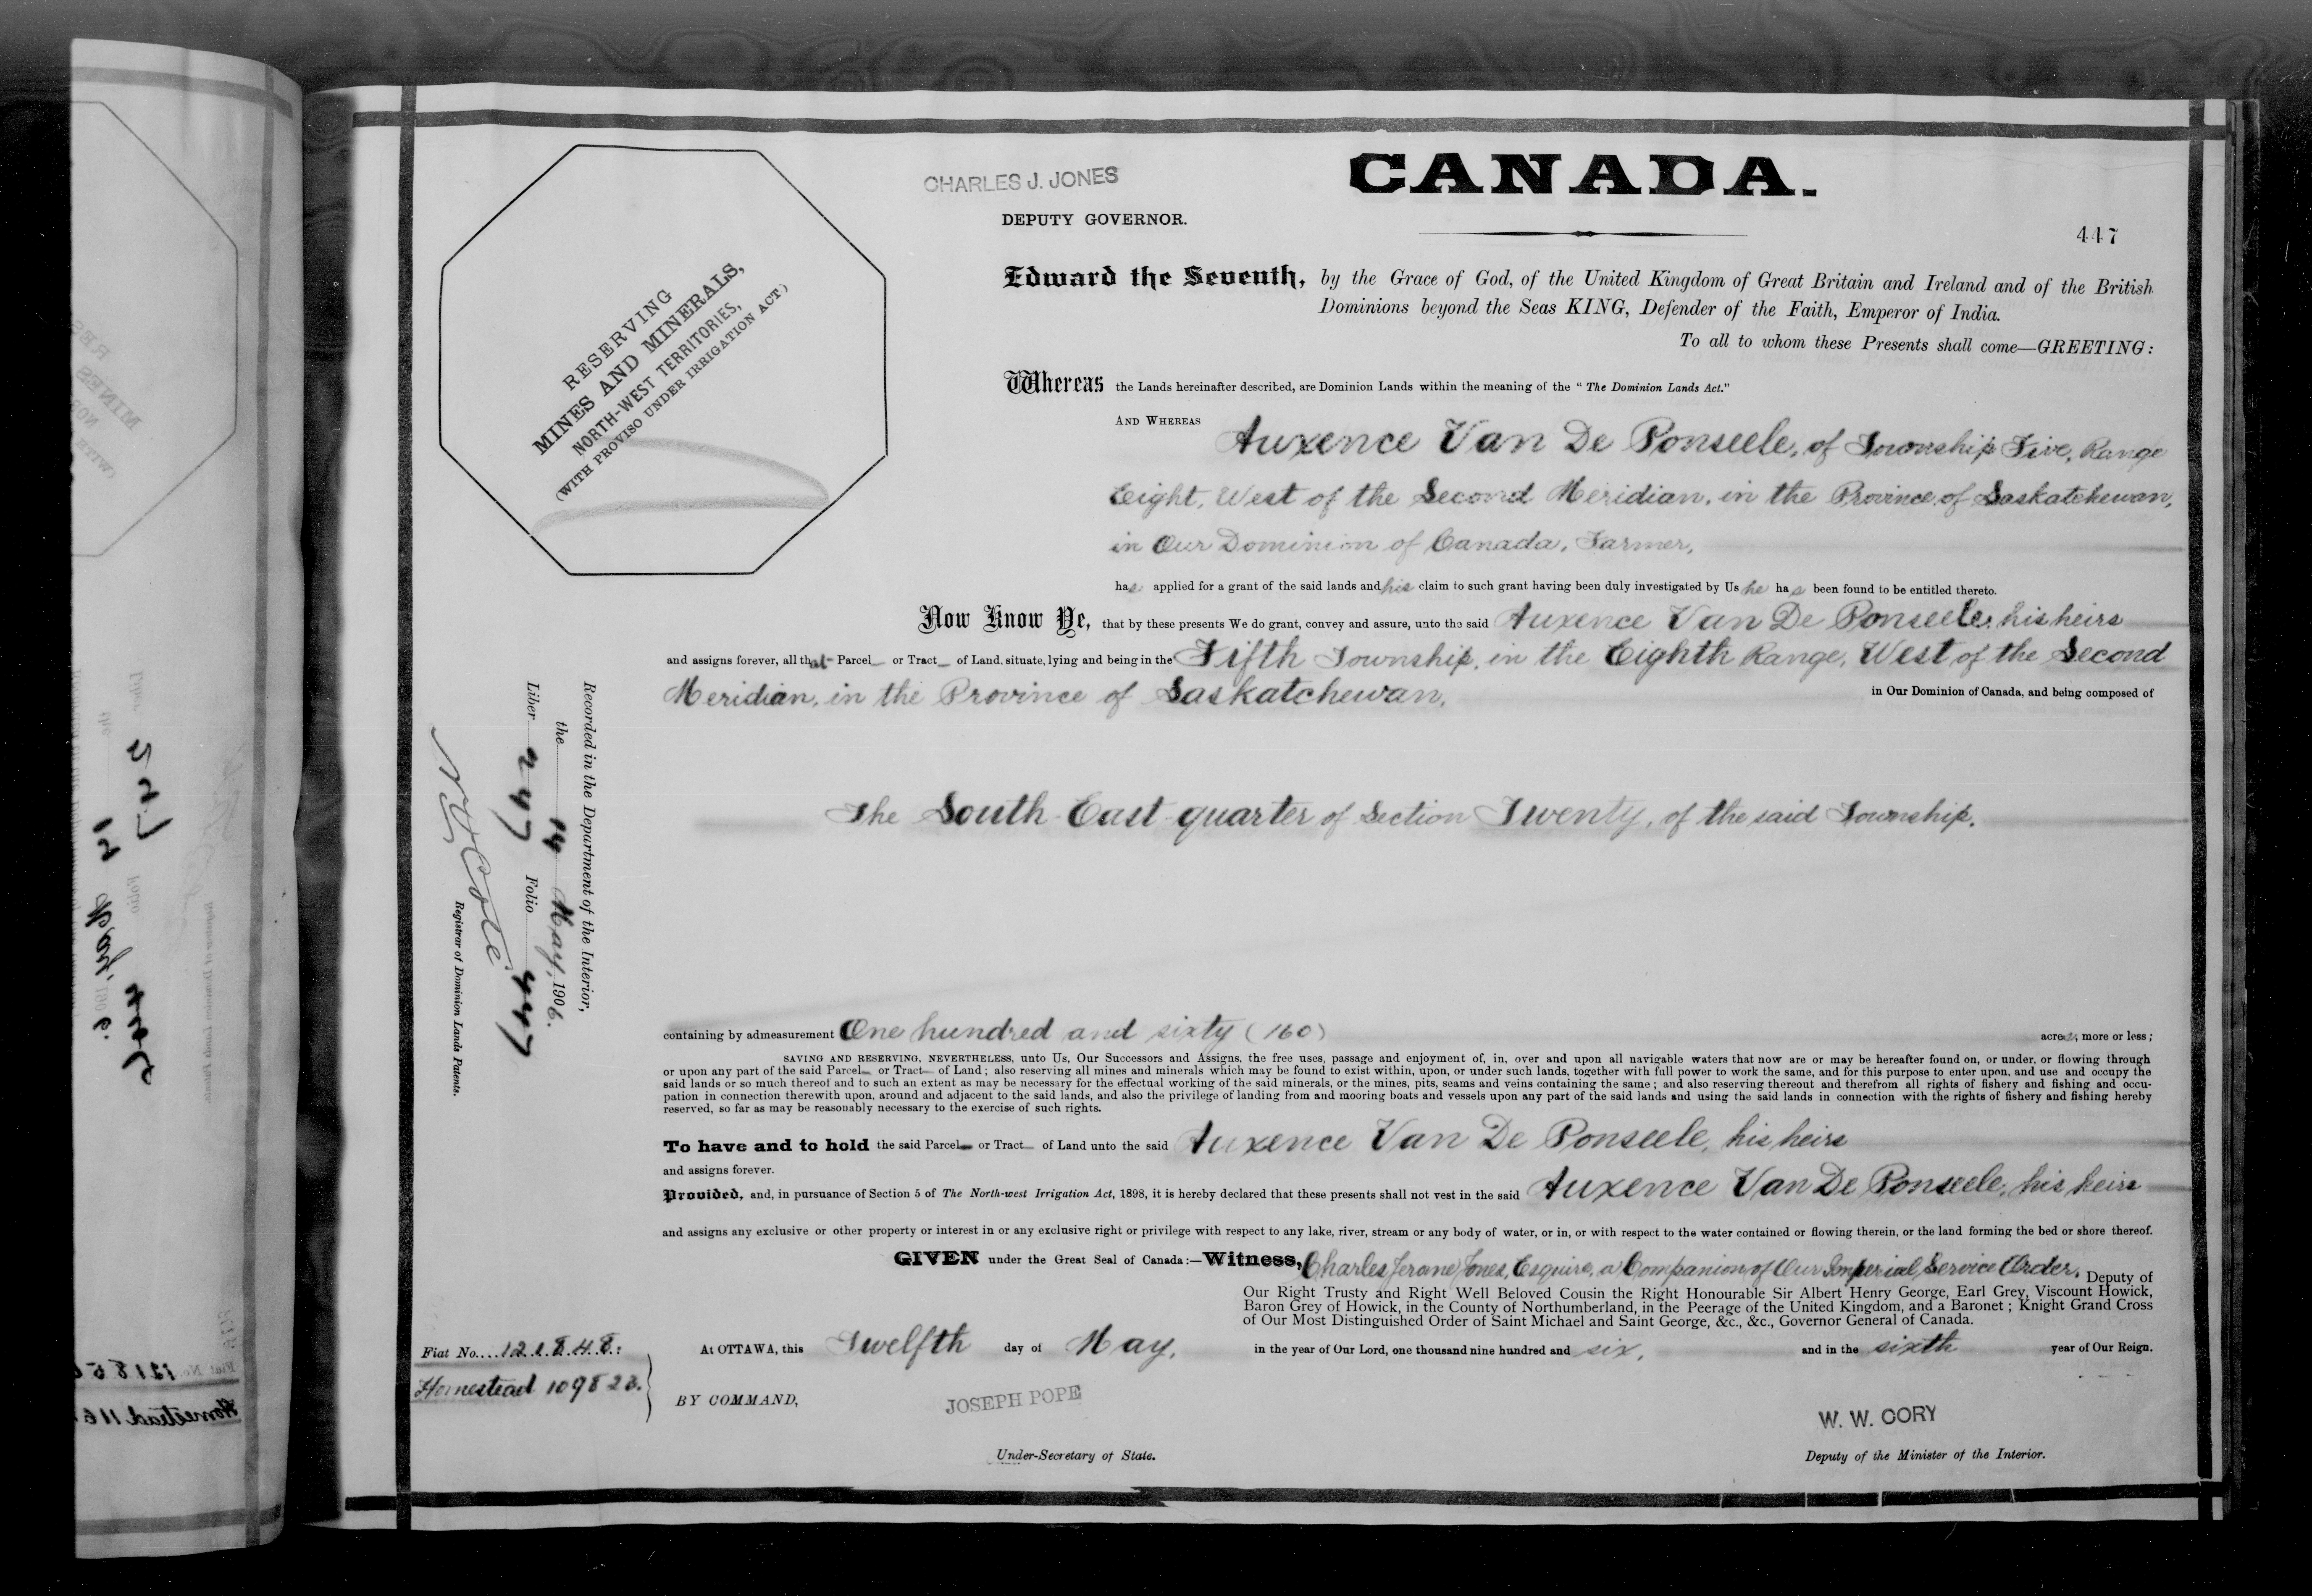 CHARLES J. JONES
DEPUTY GOVERNOR.
CANADA.
447
RESERVING
MINES AND MINERALS,
NORTH-WEST TERRITORIES,
(WITH PROVISO UNDER IRRIGATION ACT)
Edward the Seventh, by the Grace of God, of the United Kingdom of Great Britain and Ireland and of the British
Dominions beyond the Seas KING, Defender of the Faith, Emperor of India.
To all to whom these Presents shall come—GREETING:
Whereas the Lands hereinafter described, are Dominion Lands within the meaning of the "The Dominion Lands Act."
AND WHEREAS Auxence Van De Ponseele, of Township Five, Range
Eight, West of the Second Meridian, in the Province of Saskatchewan,
in Our Dominion of Canada, Farmer,
has applied for a grant of the said lands and his claim to such grant having been duly investigated by Us he has been found to be entitled thereto.
Now Know Ye, that by these presents We do grant, convey and assure, unto the said Auxence Van De Ponseele, his heirs
and assigns forever, all that Parcel or Tract of Land, situate, lying and being in the Fifth Township, in the Eighth Range, West of the Second
Meridian, in the Province of Saskatchewan, in Our Dominion of Canada, and being composed of
The South East quarter of Section Twenty, of the said Township.
containing by admeasurement One hundred and sixty (160) acres, more or less;
SAVING AND RESERVING, NEVERTHELESS, unto Us, Our Successors and Assigns, the free uses, passage and enjoyment of, in, over and upon all navigable waters that now are or may be hereafter found on, or under, or flowing through
or upon any part of the said Parcel or Tract of Land; also reserving all mines and minerals which may be found to exist within, upon, or under such lands, together with full power to work the same, and for this purpose to enter upon, and use and occupy the
said lands or so much thereof and to such an extent as may be necessary for the effectual working of the said minerals, or the mines, pits, seams and veins containing the same; and also reserving thereout and therefrom all rights of fishery and fishing and occu-
pation in connection therewith upon, around and adjacent to the said lands, and also the privilege of landing from and mooring boats and vessels upon any part of the said lands and using the said lands in connection with the rights of fishery and fishing hereby
reserved, so far as may be reasonably necessary to the exercise of such rights.
To have and to hold the said Parcel or Tract of Land unto the said Auxence Van De Ponseele, his heirs
and assigns forever.
Provided, and, in pursuance of Section 5 of The North-west Irrigation Act, 1898, it is hereby declared that these presents shall not vest in the said Auxence Van De Ponseele, his heirs
and assigns any exclusive or other property or interest in or any exclusive right or privilege with respect to any lake, river, stream or any body of water, or in, or with respect to the water contained or flowing therein, or the land forming the bed or shore thereof.
GIVEN under the Great Seal of Canada:—Witness, Charles Jerome Jones, Esquire, a Companion of Our Imperial Service Order, Deputy of
Our Right Trusty and Right Well Beloved Cousin the Right Honourable Sir Albert Henry George, Earl Grey, Viscount Howick,
Baron Grey of Howick, in the County of Northumberland, in the Peerage of the United Kingdom, and a Baronet; Knight Grand Cross
of Our Most Distinguished Order of Saint Michael and Saint George, &c., &c., Governor General of Canada.
At OTTAWA, this Twelfth day of May, in the year of Our Lord, one thousand nine hundred and six, and in the sixth year of Our Reign.
BY COMMAND,
JOSEPH POPE
Under-Secretary of State.
W. W. CORY
Deputy of the Minister of the Interior.
Fiat No. 121848.
Homestead 109823.
Recorded in the Department of the Interior,
the 14 May, 1906.
Liber 247 Folio 447
N O Coté
Registrar of Dominion Lands Patents.